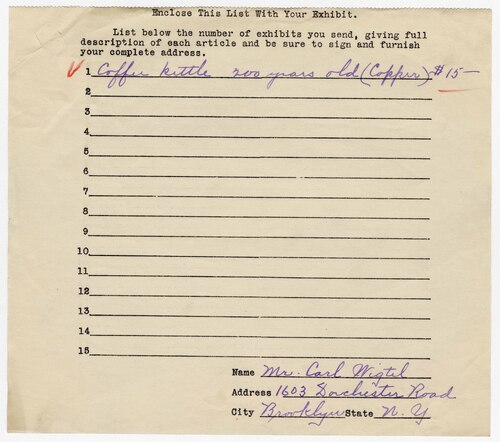 Enclose This List With Your Exhibit.
List below the number of exhibits you send, giving full
description of each article and be sure to sign and furnish
your complete address.
1 Coffee kettle 200 years old (Copper) $15—
2
3
4
5
6
7
8
9
10
11
12
13
14
15
Name Mr. Carl Wigtil
Address 1603 Dorchester Road
City Brooklyn State N. Y